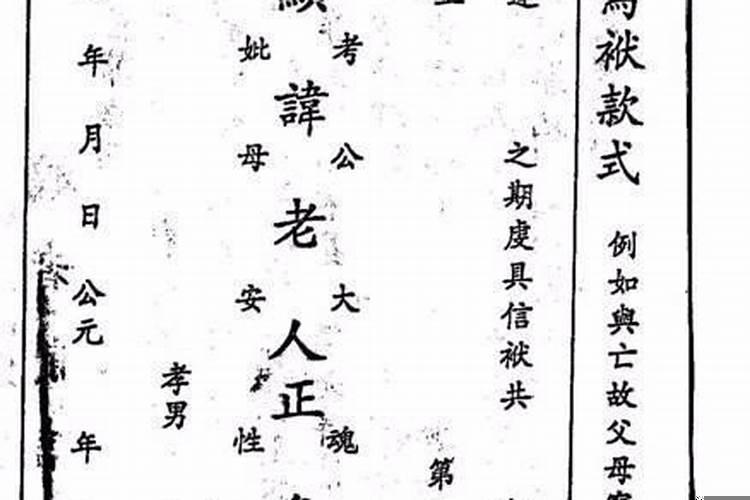 袱款式 例如與亡故父母
之期虔具信袱共
第
考 公 大 魂
諱老人正
妣 母 安 性
孝男
年月日公元 年